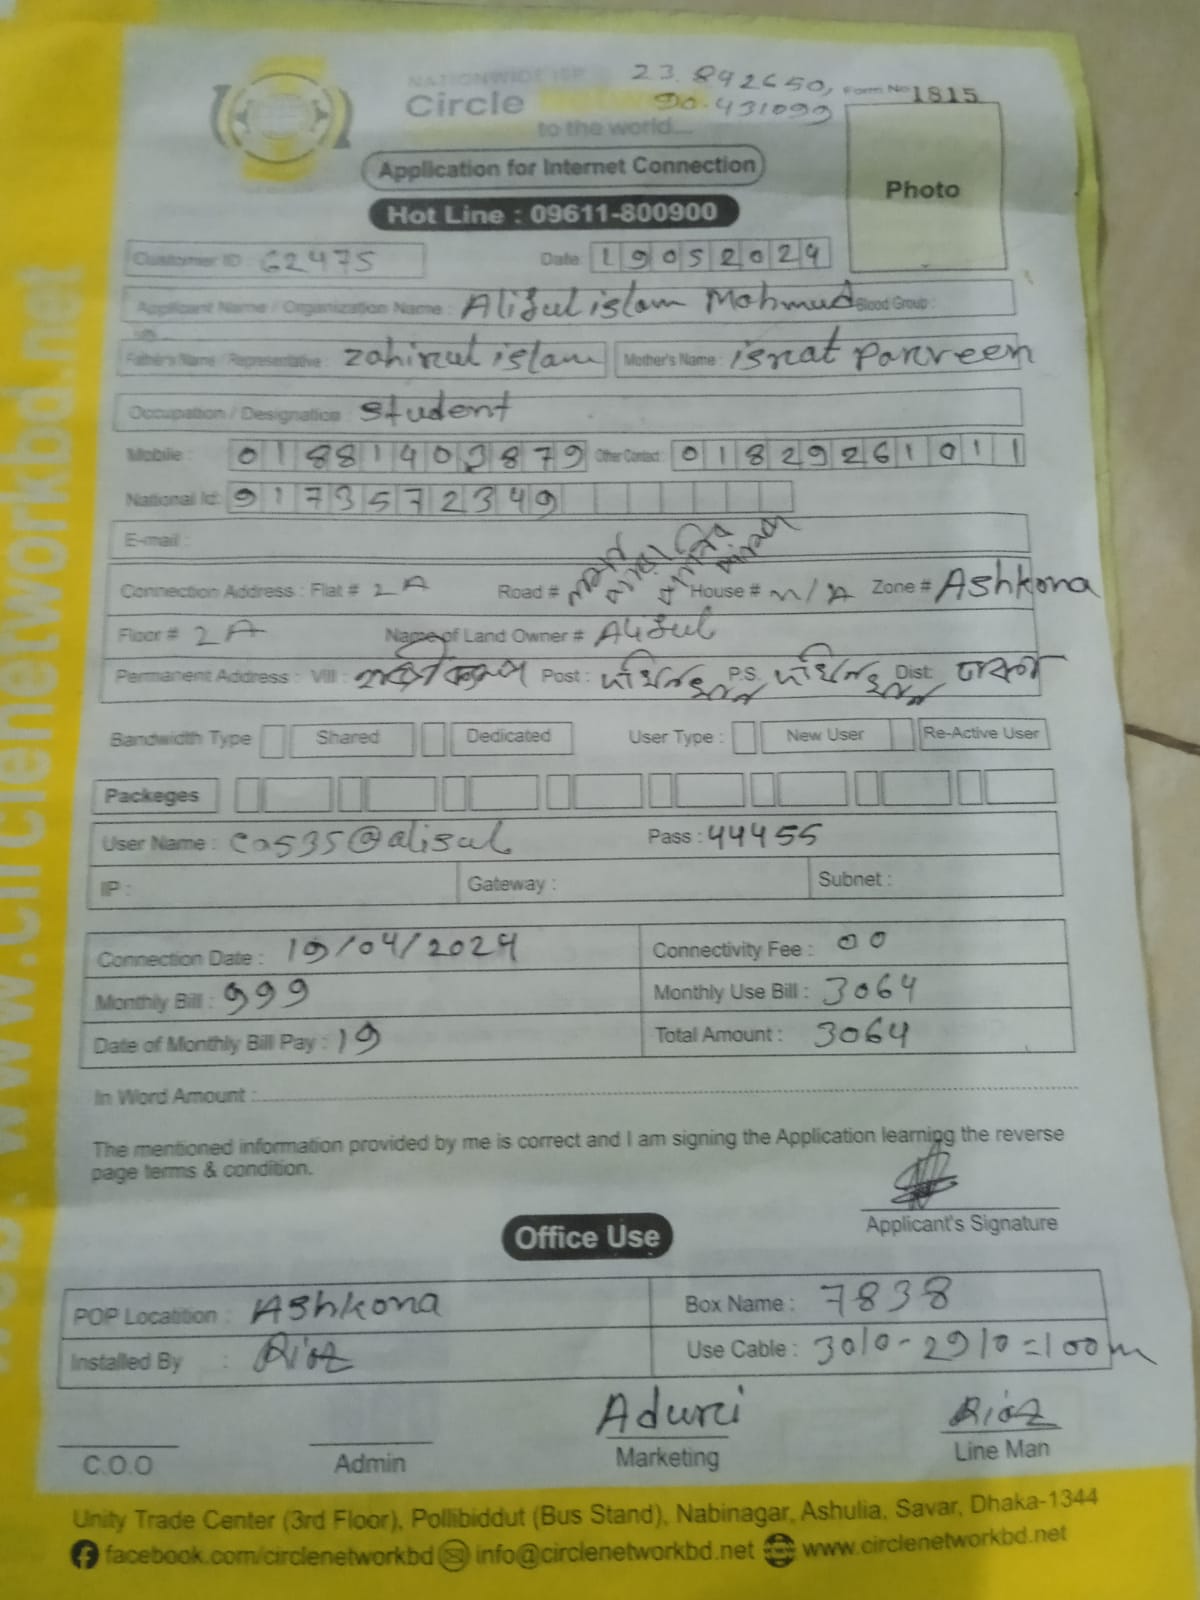 NATIONWIDE ISP 23.892650,
Circle Network 90.431099 Form No 1815
to the world...
Application for Internet Connection
Photo
Hot Line : 09611-800900
Customer ID : 62475 Date: 19052024
Applicant Name / Organization Name : Aliful islam Mahmud Blood Group :
Father's Name / Representative : Zahirul islam Mother's Name : israt Parveen
Occupation / Designation : Student
Mobile : 01881403879 Other Contact: 01829261011
National Id: 9173572349
E-mail :
Connection Address : Flat # 2 A Road # House # N/A Zone # Ashkona
Floor # 2 A Name of Land Owner # Aliful
Permanent Address : Vill : Post : P.S. Dist: ঢাকা
Bandwidth Type Shared Dedicated User Type : New User Re-Active User
Packeges
User Name : cas35@aliful Pass : 44455
IP : Gateway : Subnet :
Connection Date : 19/04/2024 Connectivity Fee : 00
Monthly Bill : 999 Monthly Use Bill : 3064
Date of Monthly Bill Pay : 19 Total Amount : 3064
In Word Amount :
The mentioned information provided by me is correct and I am signing the Application learning the reverse
page terms & condition.
Applicant's Signature
Office Use
POP Locatition : Ashkona Box Name : 7838
Installed By : Riaz Use Cable : 3010-2910=100m
Riaz
C.O.O Admin Marketing Line Man
Unity Trade Center (3rd Floor), Pollibiddut (Bus Stand), Nabinagar, Ashulia, Savar, Dhaka-1344
facebook.com/circlenetworkbd info@circlenetworkbd.net www.circlenetworkbd.net
www.circlenetworkbd.net